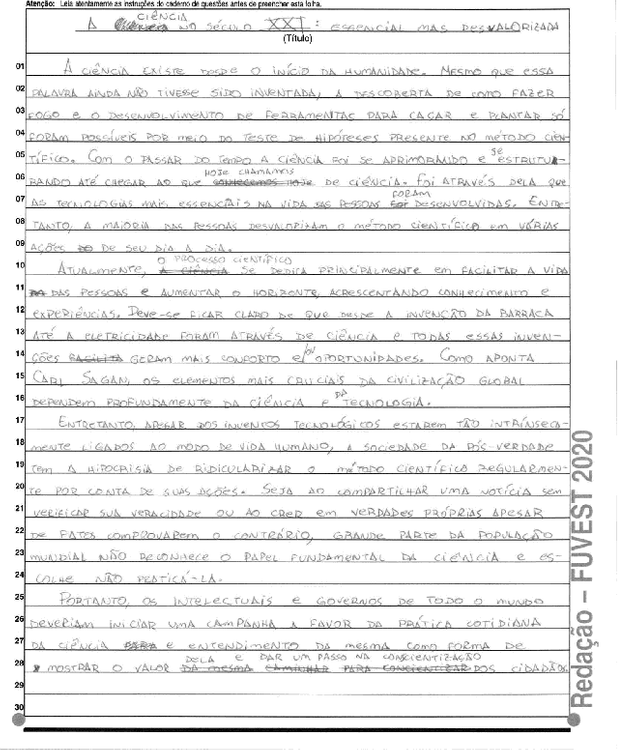 Atenção: Leia atentamente as instruções do caderno de questões antes de preencher esta folha.
CIÊNCIA
A NO SÉCULO XXI: ESSENCIAL MAS DESVALORIZADA
(Título)
01 A CIÊNCIA EXISTE DESDE O INÍCIO DA HUMANIDADE. MESMO QUE ESSA
02 PALAVRA AINDA NÃO TIVESSE SIDO INVENTADA, A DESCOBERTA DE COMO FAZER
03 FOGO E O DESENVOLVIMENTO DE FERRAMENTAS PARA CAÇAR E PLANTAR SÓ
04 FORAM POSSÍVEIS POR MEIO DO TESTE DE HIPÓTESES PRESENTE NO MÉTODO CIEN-
05 TÍFICO. COM O PASSAR DO TEMPO A CIÊNCIA FOI SE APRIMORANDO E SE ESTRUTU-
06 RANDO ATÉ CHEGAR AO QUE HOJE CHAMAMOS CONHECEMOS HOJE DE CIÊNCIA. FOI ATRAVÉS DELA QUE
07 AS TECNOLOGIAS MAIS ESSENCIAIS NA VIDA DAS PESSOAS FORAM FOI DESENVOLVIDAS. ENTRE-
08 TANTO, A MAIORIA DAS PESSOAS DESVALORIZAM O MÉTODO CIENTÍFICO EM VÁRIAS
09 AÇÕES DO DE SEU DIA A DIA.
10 ATUALMENTE, O PROCESSO CIENTÍFICO A CIÊNCIA SE DEDICA PRINCIPALMENTE EM FACILITAR A VIDA
11 DAS PESSOAS E AUMENTAR O HORIZONTE, ACRESCENTANDO CONHECIMENTO E
12 EXPERIÊNCIAS. DEVE-SE FICAR CLARO DE QUE DESDE A INVENÇÃO DA BARRACA
13 ATÉ A ELETRICIDADE FORAM ATRAVÉS DE CIÊNCIA E TODAS ESSAS INVEN-
14 ÇÕES FACILITA GERAM MAIS CONFORTO E/OU OPORTUNIDADES. COMO APONTA
15 CARL SAGAN, OS ELEMENTOS MAIS CRUCIAIS DA CIVILIZAÇÃO GLOBAL
16 DEPENDEM PROFUNDAMENTE DA CIÊNCIA E DA TECNOLOGIA.
17 ENTRETANTO, APESAR DOS INVENTOS TECNOLÓGICOS ESTAREM TÃO INTRÍNSECA-
18 MENTE LIGADOS AO MODO DE VIDA HUMANO, A SOCIEDADE DA PÓS-VERDADE
19 TEM A HIPOCRISIA DE RIDICULARIZAR O MÉTODO CIENTÍFICO REGULARMEN-
20 TE POR CONTA DE SUAS AÇÕES. SEJA AO COMPARTILHAR UMA NOTÍCIA SEM
21 VERIFICAR SUA VERACIDADE OU AO CRER EM VERDADES PRÓPRIAS APESAR
22 DE FATOS COMPROVAREM O CONTRÁRIO, GRANDE PARTE DA POPULAÇÃO
23 MUNDIAL NÃO RECONHECE O PAPEL FUNDAMENTAL DA CIÊNCIA E ES-
24 COLHE NÃO PRATICÁ-LA.
25 PORTANTO, OS INTELECTUAIS E GOVERNOS DE TODO O MUNDO
26 DEVERIAM INICIAR UMA CAMPANHA A FAVOR DA PRÁTICA COTIDIANA
27 DA CIÊNCIA PARA E ENTENDIMENTO DA MESMA COMO FORMA DE
DELA E DAR UM PASSO NA CONSCIENTIZAÇÃO
28 MOSTRAR O VALOR DA MESMA CAMINHAR PARA CONSCIENTIZAR DOS CIDADÃOS.
29
30
Redação – FUVEST 2020